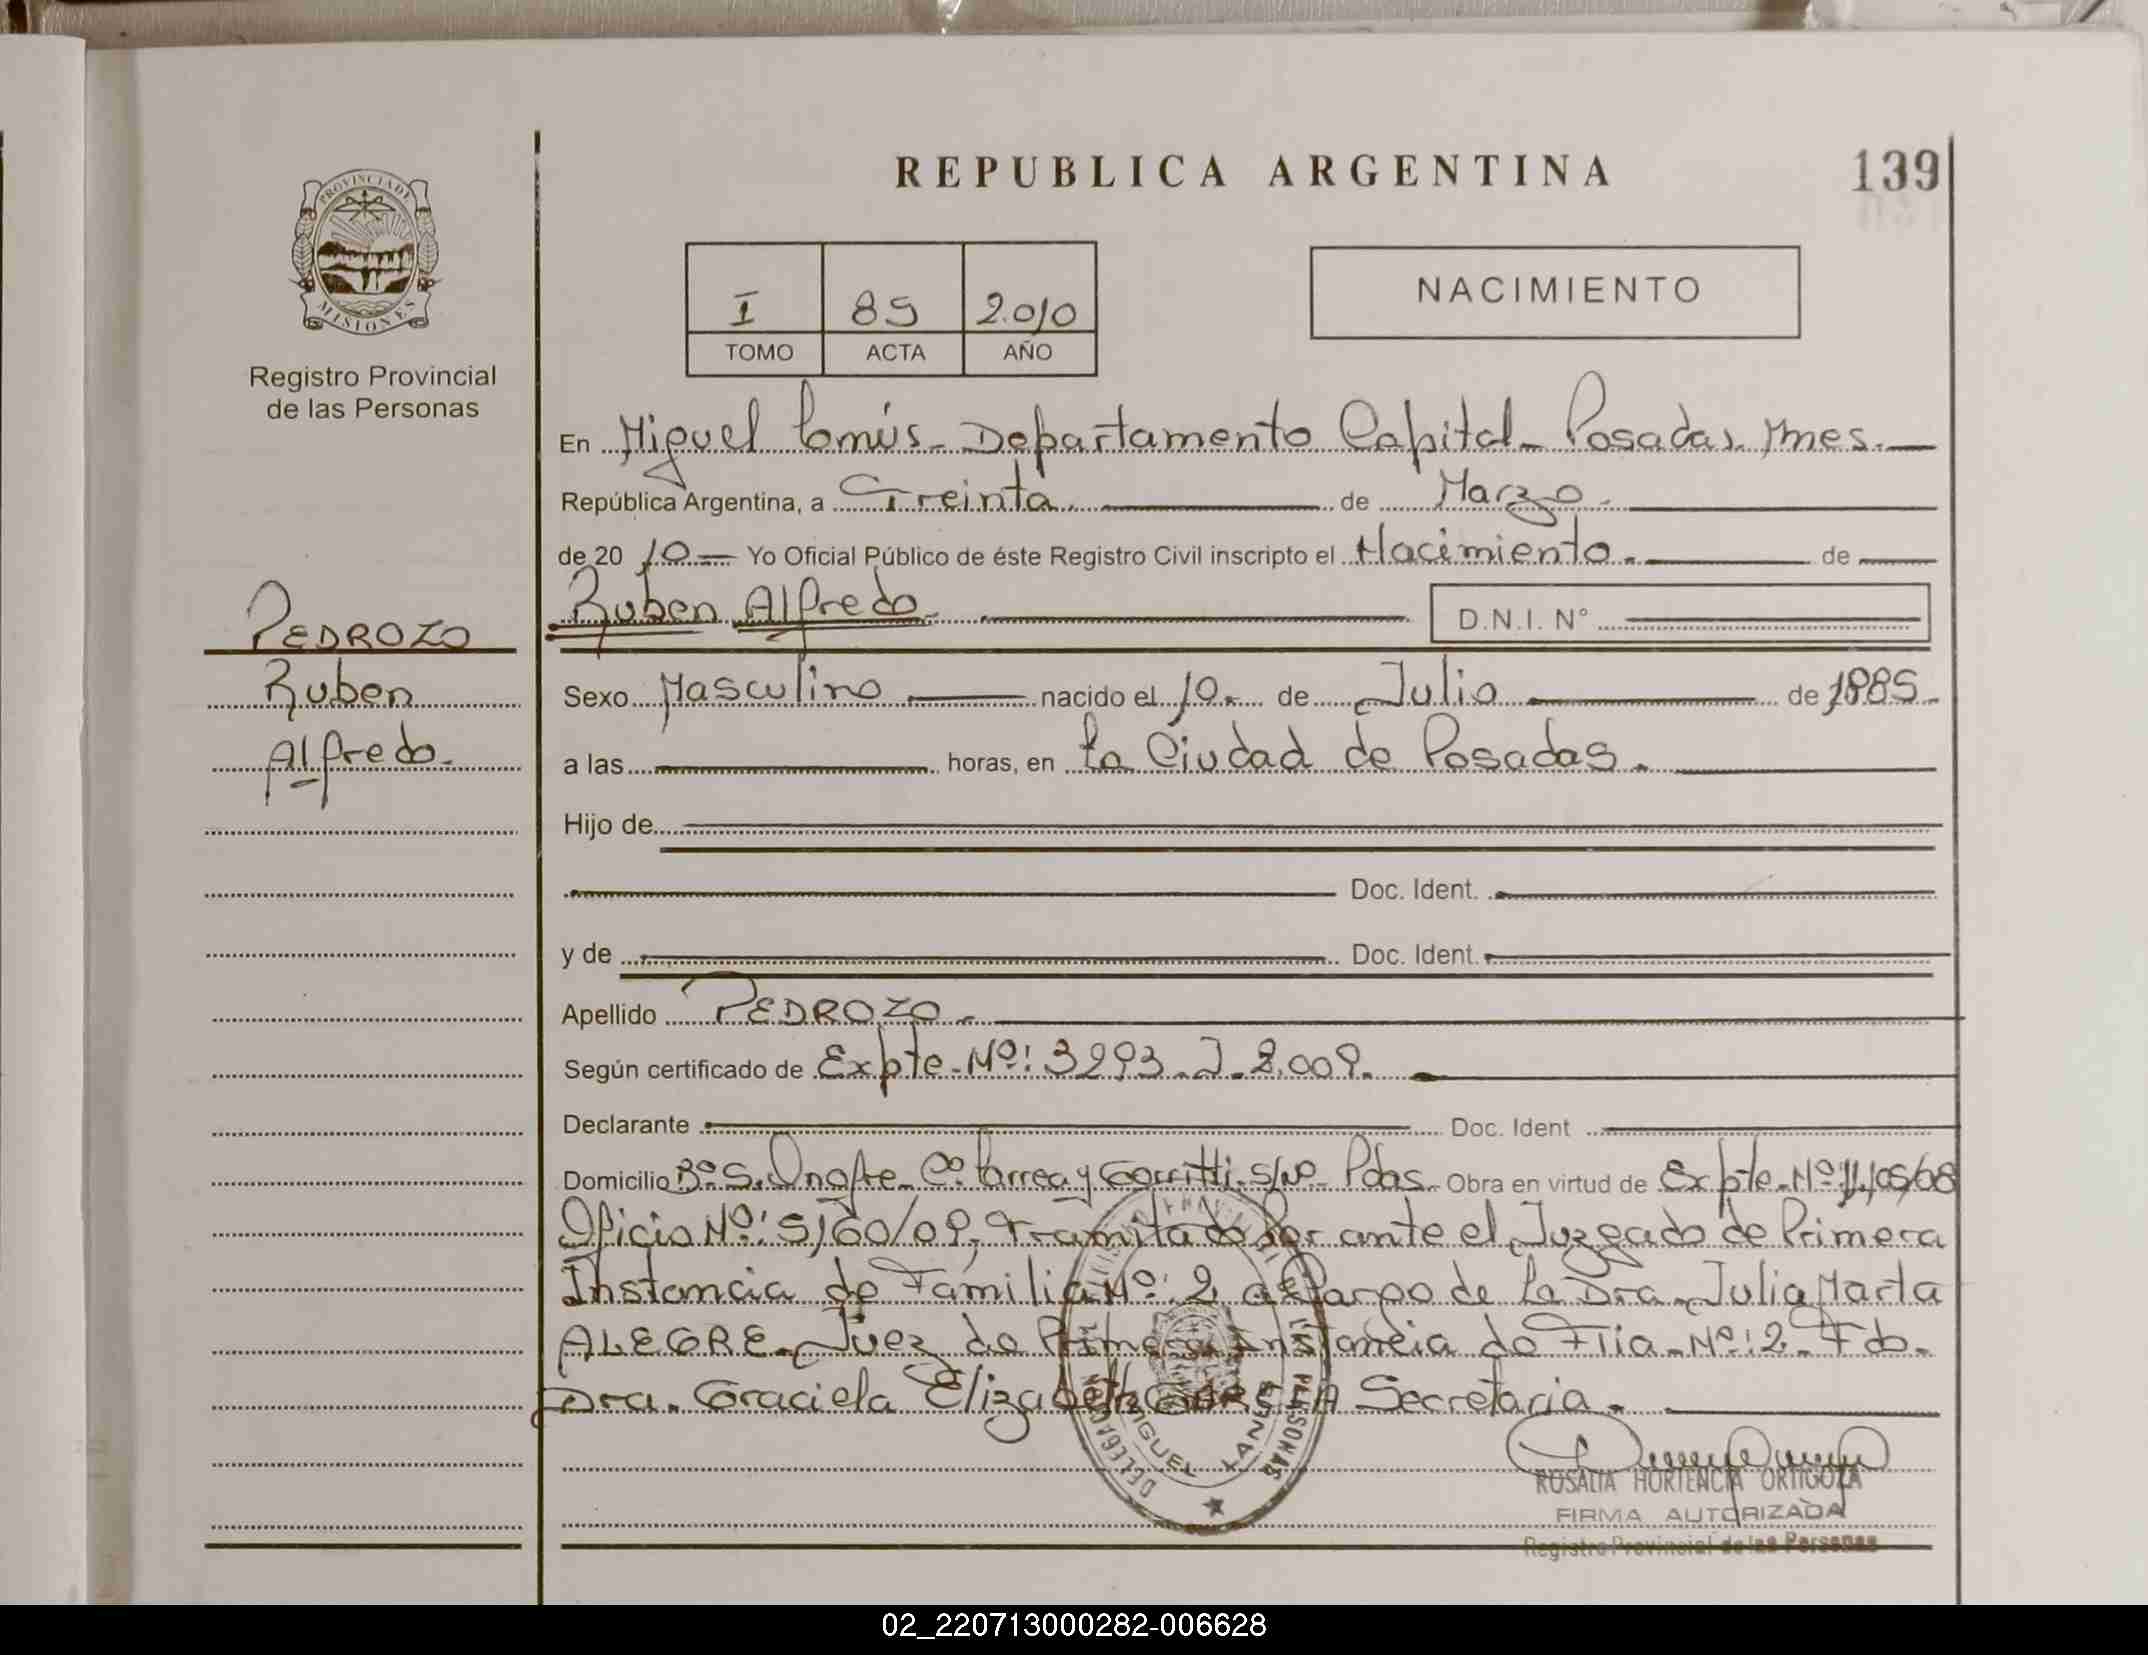 REPUBLICA ARGENTINA
139
PROVINCIA DE
MISIONES
Registro Provincial
de las Personas
I 85 2.010
TOMO ACTA AÑO
NACIMIENTO
En Miguel Lanús - Departamento Capital - Posadas Mnes.
República Argentina, a Treinta. de Marzo.
de 20 10 Yo Oficial Público de éste Registro Civil inscripto el Nacimiento. de
Ruben Alfredo. D.N.I. N°
PEDROZO
Ruben
Alfredo.
Sexo Masculino nacido el 10. de Julio de 1985.
a las horas, en La Ciudad de Posadas.
Hijo de
Doc. Ident.
y de Doc. Ident.
Apellido PEDROZO.
Según certificado de Expte. Nº: 3293. J. 2.009.
Declarante Doc. Ident
Domicilio Bº S. Onofre Cº Larrea y Gorritti. S/Nº Pdas. Obra en virtud de Expte. Nº
Oficio Nº: 5160/09, Tramitado Por ante el Juzgado de Primera
Instancia de Familia Nº: 2 a Cargo de La Dra. Julia Marta
ALEGRE. Juez de Primera Instancia de Flia. Nº: 2. Fdo.
Dra. Graciela Elizabeth Secretaria.
MIGUEL LANUS
PERSONAS
ROSALIA HORTENCIA ORTIGOZA
FIRMA AUTORIZADA
Registro Provincial de las Personas
02_220713000282-006628